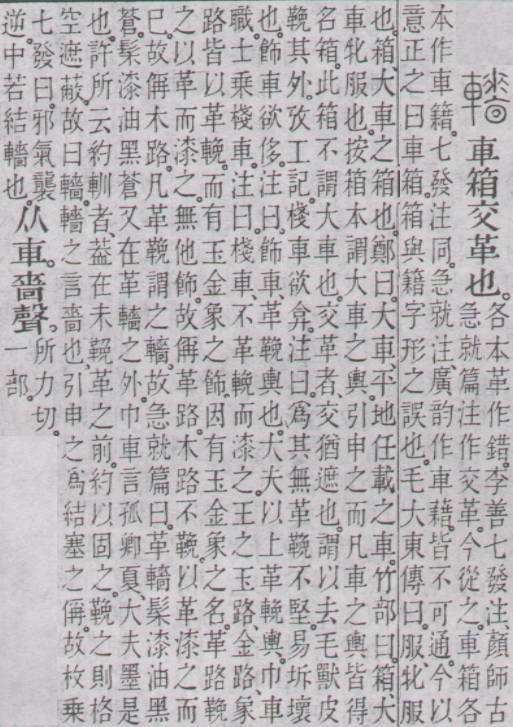 轖 車箱交革也。各本革作錯。李善七發注、顏師古
急就篇注作交革。今從之。車箱各
本作車籍。七發注同。急就注、廣韵作車藉。皆不可通。今以
意正之曰車箱。箱與籍字形之誤也。毛大東傳曰。服、牝服
也。箱、大車之箱也。鄭曰。大車、平地任載之車。竹部曰。箱、大
車牝服也。按箱本謂大車之輿。引申之而凡車之輿皆得
名箱。此箱不謂大車也。交革者、交猶遮也。謂以去毛獸皮
鞔其外。攷工記。棧車欲弇。注曰。爲其無革鞔不堅。易坼壞
也。飾車欲侈。注曰。飾車、革鞔輿也。大夫以上革鞔輿。巾車
職士乘棧車。注曰。棧車、不革鞔而漆之。王之玉路、金路、象
路皆以革鞔。而有玉金象之飾。因有玉金象之名。革路鞔
之以革而漆之。無他飾。故偁革路。木路不鞔。以革漆之而
已。故偁木路。凡革鞔謂之轖。故急就篇曰。革轖髤漆油黑
蒼。髤漆油黑蒼又在革轖之外。巾車言孤卿夏、大夫墨是
也。許所云約䡅者、葢在未鞔革之前。約以固之。鞔之則格
空遮蔽。故曰轖。轖之言嗇也。引申之爲結塞之偁。故枚乘
七發曰。邪氣襲
逆。中若結轖也。
从車。嗇聲。所力切。
一部。